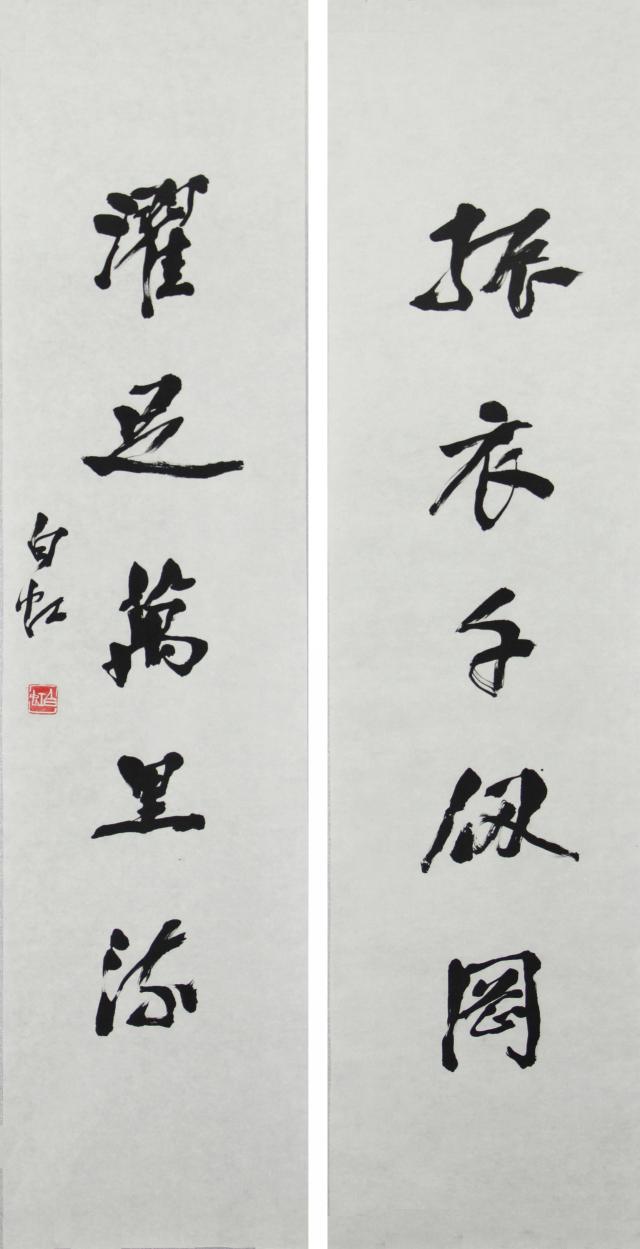 振衣千仞岡
濯足萬里流
白虹
白虹